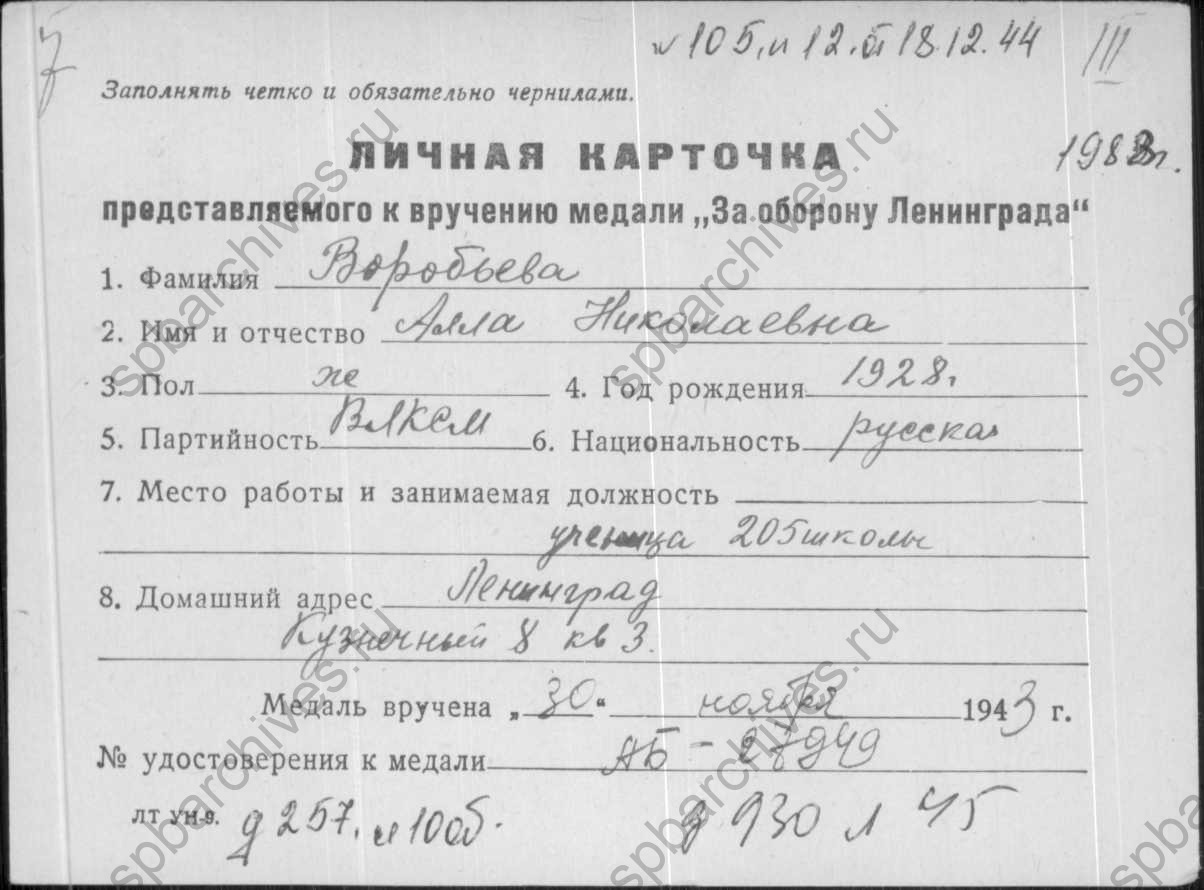 7
105, л 12. от 18.12.44 III
Заполнять четко и обязательно чернилами.
ЛИЧНАЯ КАРТОЧКА
представляемого к вручению медали „За оборону Ленинграда“
1. Фамилия Воробьева
2. Имя и отчество Алла Николаевна
3. Пол же 4. Год рождения 1928.
5. Партийность ВЛКСМ 6. Национальность русская
7. Место работы и занимаемая должность
ученица 205 школы
8. Домашний адрес Ленинград
Кузнечный 8 кв 3.
Медаль вручена „30“ ноября 1943 г.
№ удостоверения к медали АБ - 27949
лт ун-в. д 257, л 10об. д 930 л 45
spbarchives.ru
spbarchives.ru
spbarchives.ru
spbarchives.ru